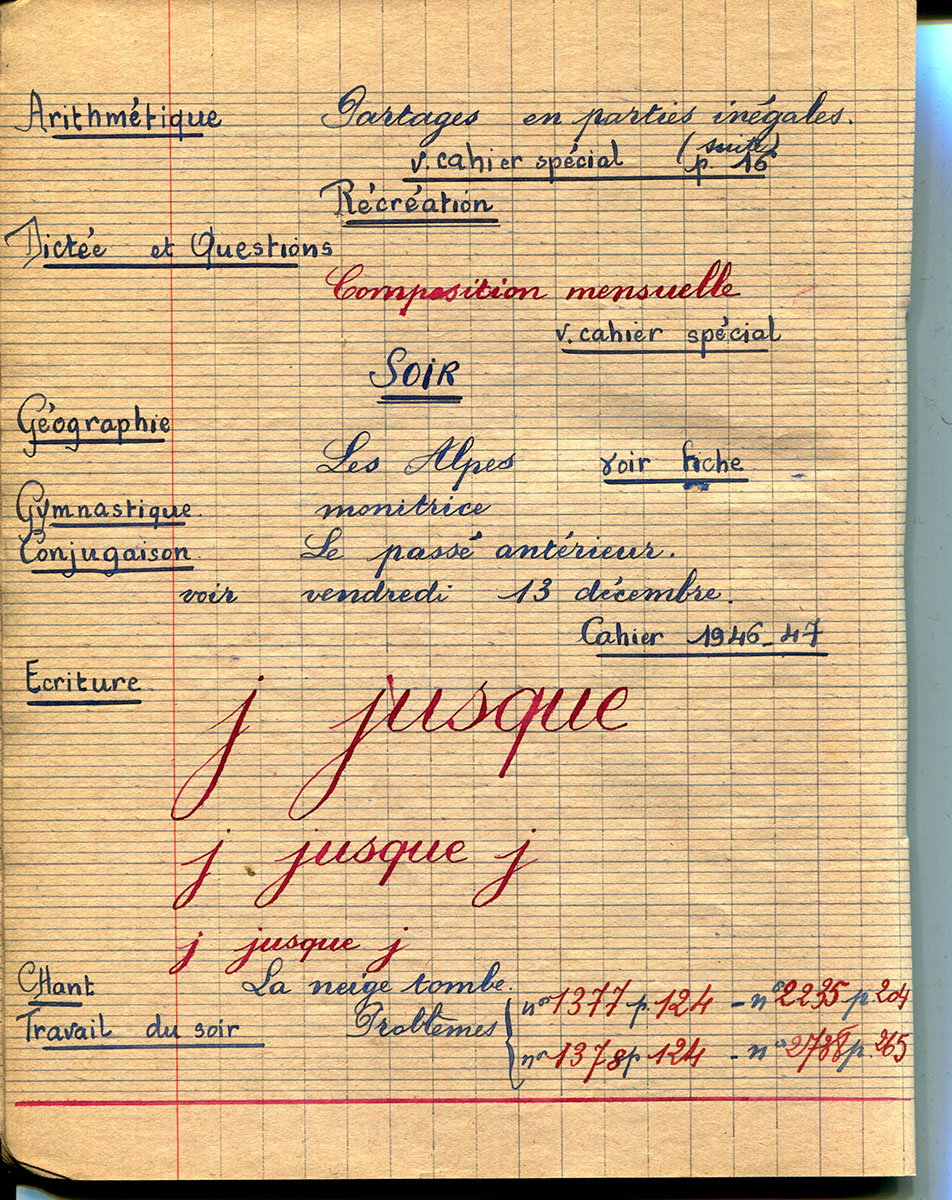 Arithmétique Partages en parties inégales.
v. cahier spécial (suite) p. 16
Récréation
Dictée et Questions
Composition mensuelle
v. cahier spécial
SOIR
Géographie
Les Alpes voir fiche
Gymnastique. monitrice
Conjugaison. Le passé antérieur.
voir vendredi 13 décembre.
Cahier 1946-47
Ecriture. j jusque
j jusque j
j jusque j
CHant La neige tombe.
Travail du soir Problèmes { n° 1377 p. 124 - n° 2235 p. 204
n° 1378 p 124 - n° 2788 p. 265